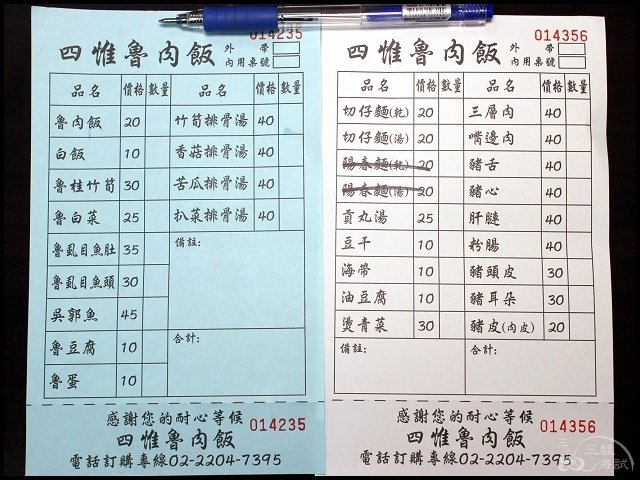 014235
四惟魯肉飯 外帶
內用桌號
品名 價格 數量 品名 價格 數量
魯肉飯 20 竹筍排骨湯 40
白飯 10 香菇排骨湯 40
魯桂竹筍 30 苦瓜排骨湯 40
魯白菜 25 扒菜排骨湯 40
魯虱目魚肚 35 備註:
魯虱目魚頭 30
吳郭魚 45
魯豆腐 10 合計:
魯蛋 10
感謝您的耐心等候 014235
四惟魯肉飯
電話訂購專線02-2204-7395
014356
四惟魯肉飯 外帶
內用桌號
品名 價格 數量 品名 價格 數量
切仔麵(乾) 20 三層肉 40
切仔麵(湯) 20 嘴邊肉 40
陽春麵(乾) 20 豬舌 40
陽春麵(湯) 20 豬心 40
貢丸湯 25 肝腱 40
豆干 10 粉腸 40
海帶 10 豬頭皮 30
油豆腐 10 豬耳朵 30
燙青菜 30 豬皮(肉皮) 20
備註: 合計:
感謝您的耐心等候 014356
四惟魯肉飯
電話訂購專線02-2204-7395